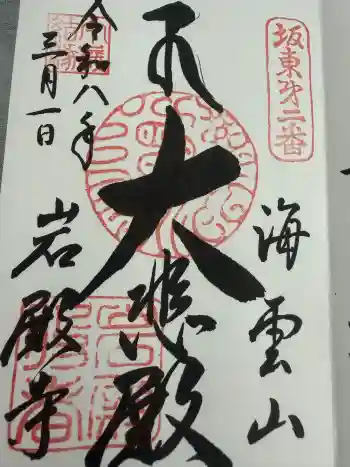 坂東第二番
海雲山
大悲殿
岩殿寺
令和八年
三月一日